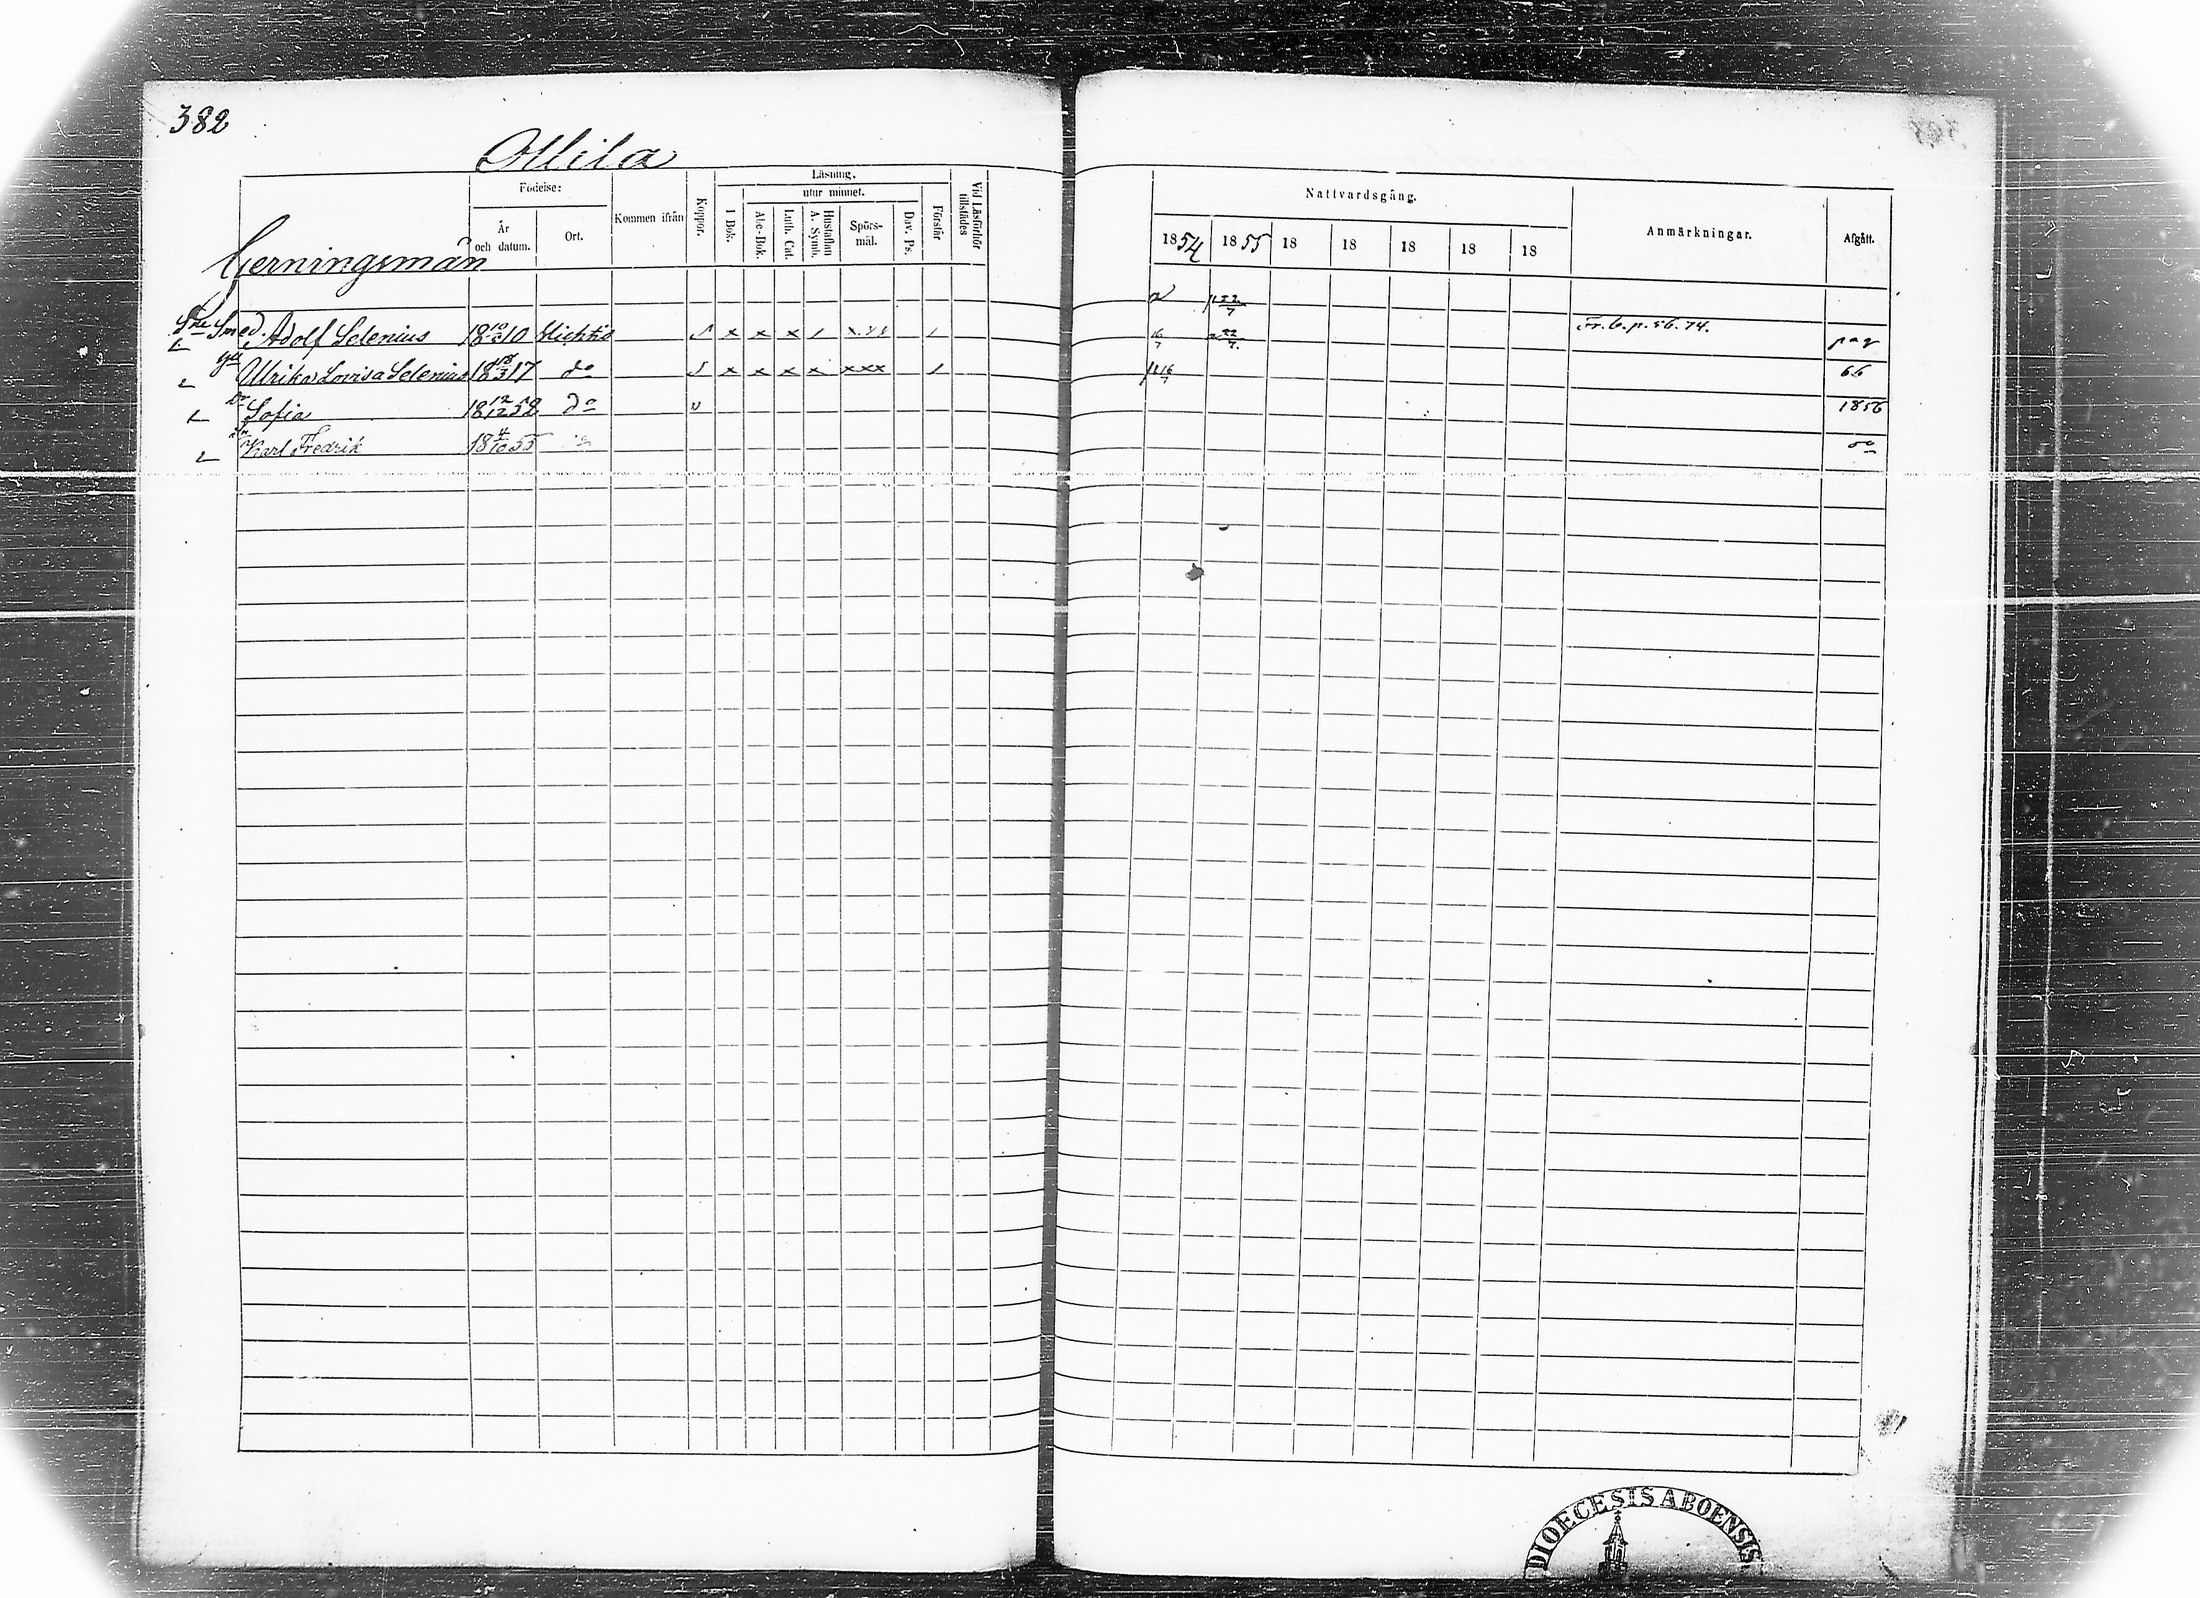 382
Ollila
Födelse:
Läsning.
utur minnet.
År och datum.
Ort.
Kommen ifrån
Koppor.
I Bok.
Abc-Bok.
Luth. Cat.
Hustaflan A. Symb.
Spörs-mål.
Dav. Ps.
Förstår
Vid Läsförhör tillstädes
Gerningsmän
Smed. Adolf Selenius 18 10
x x x
Ulrika Lovisa Selenius 18 17 do
x x x x xxx
Sofia 18 12/12 52 do
Karl Fredrik 18 4/10 55
Nattvardsgång.
Anmärkningar.
Afgått.
1854 1855 18 18 18 18 18
22/7
16/7 22/7 Fr. b. p. 56. 74. pag
16/7 66
1856
do
DIOECESIS ABOENSIS